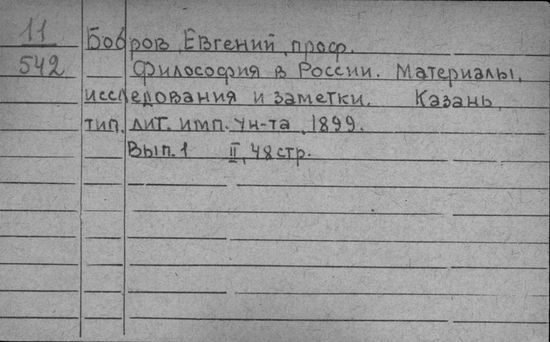 11
542
Бобров, Евгений, проф.
Философия в России. Материалы,
исследования и заметки. Казань,
тип. лит. имп. Ун-та, 1899.
Вып. 1 II, 48 стр.